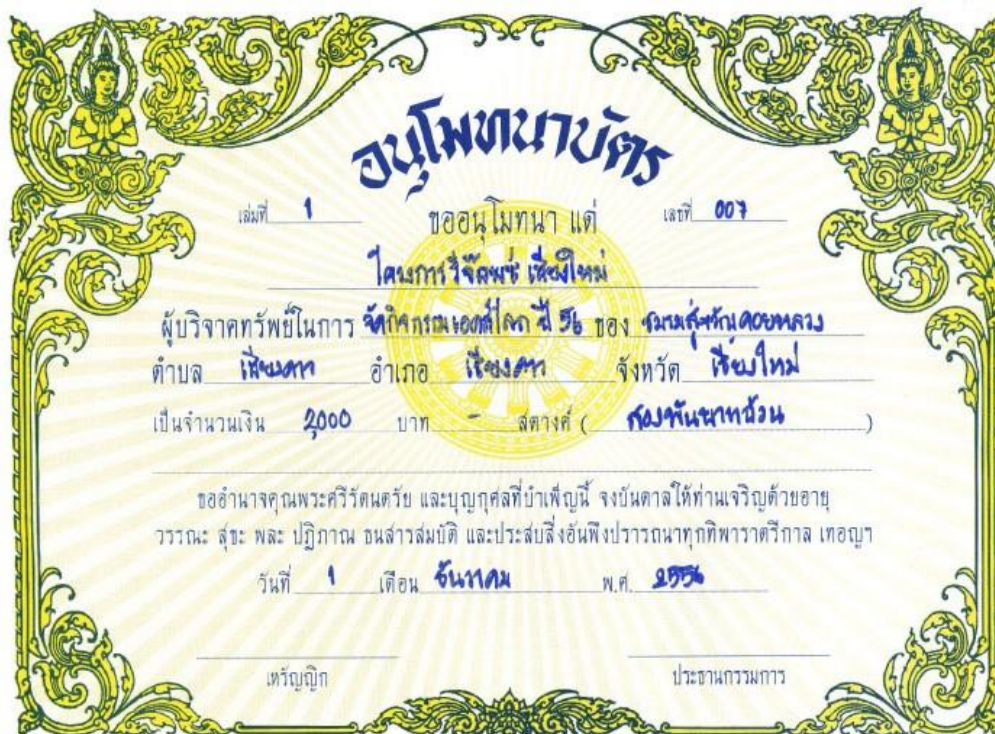 อนุโมทนาบัตร
เล่มที่ 1 ขออนุโมทนา แด่ เลขที่ 007
โครงการวิจัยพช เชียงใหม่
ผู้บริจาคทรัพย์ในการ จัดกิจกรรมเอดส์โลก ปี 56 ของ ชมรมสุขวัณดอยหลวง
ตำบล เชียงดาว อำเภอ เชียงดาว จังหวัด เชียงใหม่
เป็นจำนวนเงิน 2,000 บาท - สตางค์ ( สองพันบาทถ้วน )
ขออำนาจคุณพระศรีรัตนตรัย และบุญกุศลที่บำเพ็ญนี้ จงบันดาลให้ท่านเจริญด้วยอายุ
วรรณะ สุขะ พละ ปฏิภาณ ธนสารสมบัติ และประสบสิ่งอันพึงปรารถนาทุกทิพาราตรีกาล เทอญฯ
วันที่ 1 เดือน ธันวาคม พ.ศ. 2556
เหรัญญิก ประธานกรรมการ